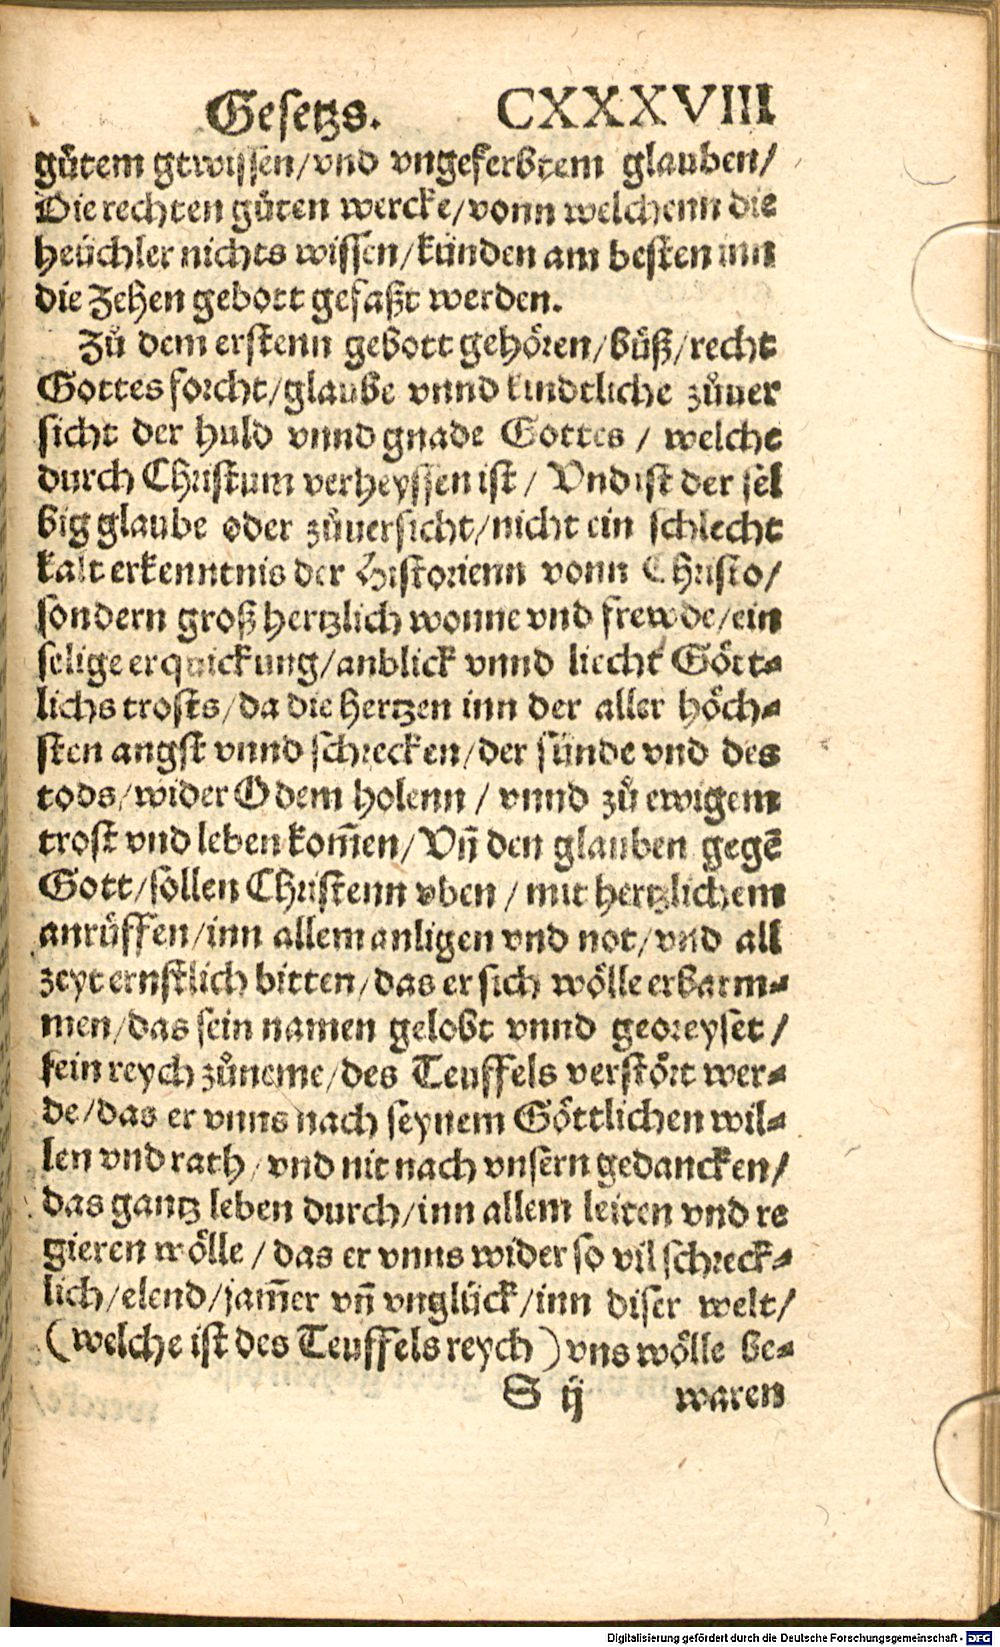 Gesetzs. CXXXVIII
gůtem gtwissen/vnd vngeferbtem glauben/
Die rechten gůten wercke/vonn welchenn die
heüchler nichts wissen/künden am besten inn
die Zehen gebott gefaßt werden.
Zů dem erstenn gebott gehören/bůß/recht
Gottes forcht/glaube vnnd kindtliche zůuer
sicht der huld vnnd gnade Gottes / welche
durch Christum verheyssen ist / Vnd ist der sel
big glaube oder zůuersicht/nicht ein schlecht
kalt erkenntnis der Historienn vonn Christo/
sondern groß hertzlich wonne vnd frewde/ein
selige erquickung/anblick vnnd liecht Gött⸗
lichs trosts/da die hertzen inn der aller höch⸗
sten angst vnnd schrecken/der sünde vnd des
tods/wider Odem holenn / vnnd zů ewigem
trost vnd leben kom̃en/Vñ den glauben gegẽ
Gott/sollen Christenn vben / mit hertzlichem
anrůffen/inn allem anligen vnd not/vnd all
zeyt ernstlich bitten/das er sich wölle erbarm⸗
men/das sein namen gelobt vnnd georeyset /
sein reych zůneme/des Teuffels verstört wer⸗
de/das er vnns nach seynem Göttlichen wil⸗
len vnd rath/vnd nit nach vnsern gedancken/
das gantz leben durch/inn allem leiten vnd re
gieren wölle / das er vnns wider so vil schreck⸗
lich/elend/jam̃er vñ vnglück/inn diser welt/
(welche ist des Teuffels reych) vns wölle be⸗
S ij waren
Digitalisierung gefördert durch die Deutsche Forschungsgemeinschaft - DFG